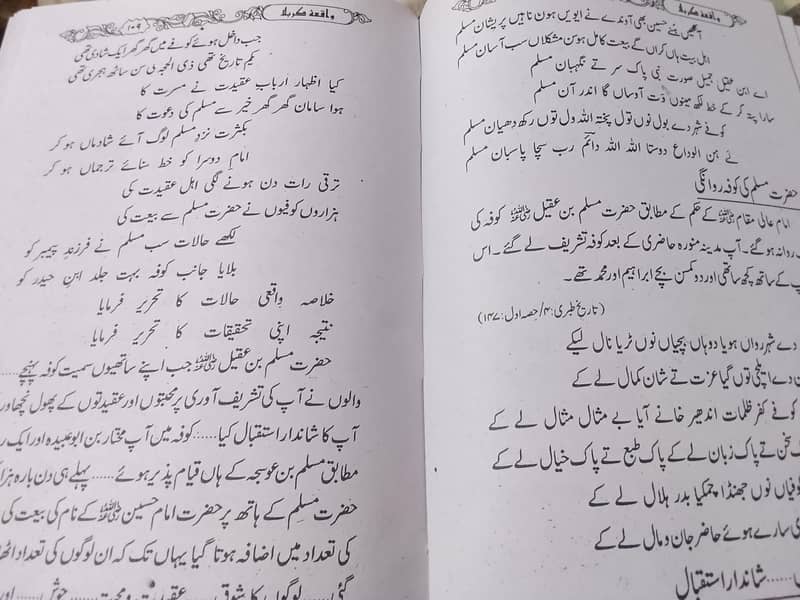 واقعۂ کربلا
حسین بھی آوندے نے ایویں ہون ناہیں پریشان مسلم
اہل بیت ہاں کراں گے بیعت کامل ہوسن مشکلاں سب آسان مسلم
اے ابن عقیل جمیل صورت نبی پاک سر تے نگہبان مسلم
سارا پتہ کر کے خط لکھ مینوں وَت آوساں گا اندر آن مسلم
کوفے شہر دے بول نوں تول پختہ اللہ ول توں رکھ دھیان مسلم
نے ہن الوداع دوستا اللہ اللہ دائم رب سچا پاسبان مسلم
حضرت مسلم کی کوفہ روانگی
امام عالی مقام رضی اللہ عنہ کے حکم کے مطابق حضرت مسلم بن عقیل رضی اللہ عنہ کوفہ کی
روانہ ہو گئے۔ آپ مدینہ منورہ حاضری کے بعد کوفہ تشریف لے گئے۔ اس
کے ساتھ کچھ ساتھی اور دو کمسن بچے ابراہیم اور محمد تھے۔
(تاریخ طبری: ۴/حصہ اول: ۱۴۷)
دے شہر رواں ہویا دوہاں بچیاں نوں ٹریا نال لیکے
دے ایلچی توں گیا عزت تے شان کمال لے کے
کوفے کفر ظلمات اندھیر خانے آیا بے مثال مثال لے کے
سخن تے پاک زبان لے کے پاک طبع تے پاک خیال لے کے
کوفیاں نوں جھنڈا چمکیا بدر ہلال لے کے
سارے ہوئے حاضر جان و مال لے کے
...... شاندار استقبال
واقعۂ کربلا
جب داخل ہوئے کوفے میں گھر گھر ایک شادی تھی
یکم تاریخ تھی ذی الحجہ کی سن ساٹھ ہجری تھی
کیا اظہار ارباب عقیدت نے مسرت کا
ہوا سامان گھر گھر خیر سے مسلم کی دعوت کا
بکثرت نزدِ مسلم لوگ آئے شادماں ہو کر
امام دوسرا کو خط سنائے ترجماں ہو کر
ترقی رات دن ہونے لگی اہل عقیدت کی
ہزاروں کوفیوں نے حضرت مسلم سے بیعت کی
لکھے حالات سب مسلم نے فرزندِ پیمبر کو
بلایا جانب کوفہ بہت جلد ابنِ حیدر کو
خلاصہ واقعی حالات کا تحریر فرمایا
نتیجہ اپنی تحقیقات کا تحریر فرمایا
حضرت مسلم بن عقیل رضی اللہ عنہ جب اپنے ساتھیوں سمیت کوفہ پہنچے......
والوں نے آپ کی تشریف آوری پر محبتوں اور عقیدتوں کے پھول نچھاور
آپ کا شاندار استقبال کیا...... کوفہ میں آپ مختار بن ابو عبیدہ اور ایک
مطابق مسلم بن عوسجہ کے ہاں قیام پذیر ہوئے...... پہلے ہی دن بارہ
حضرت مسلم کے ہاتھ پر حضرت امام حسین رضی اللہ عنہ کے نام کی بیعت کی
کی تعداد میں اضافہ ہوتا گیا یہاں تک کہ ان لوگوں کی تعداد
گئی...... لوگوں کا شوق...... عقیدت و محبت...... جوش...... اور